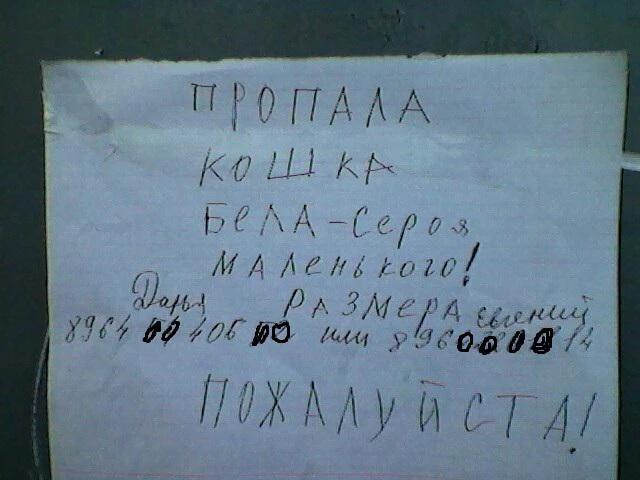 ПРОПАЛА
КОШКА
БЕЛА-Сероя
МАЛенького!
Дарья РАЗМЕРА евгений
8964 406 или 896 14
ПОЖАЛУЙСТА!